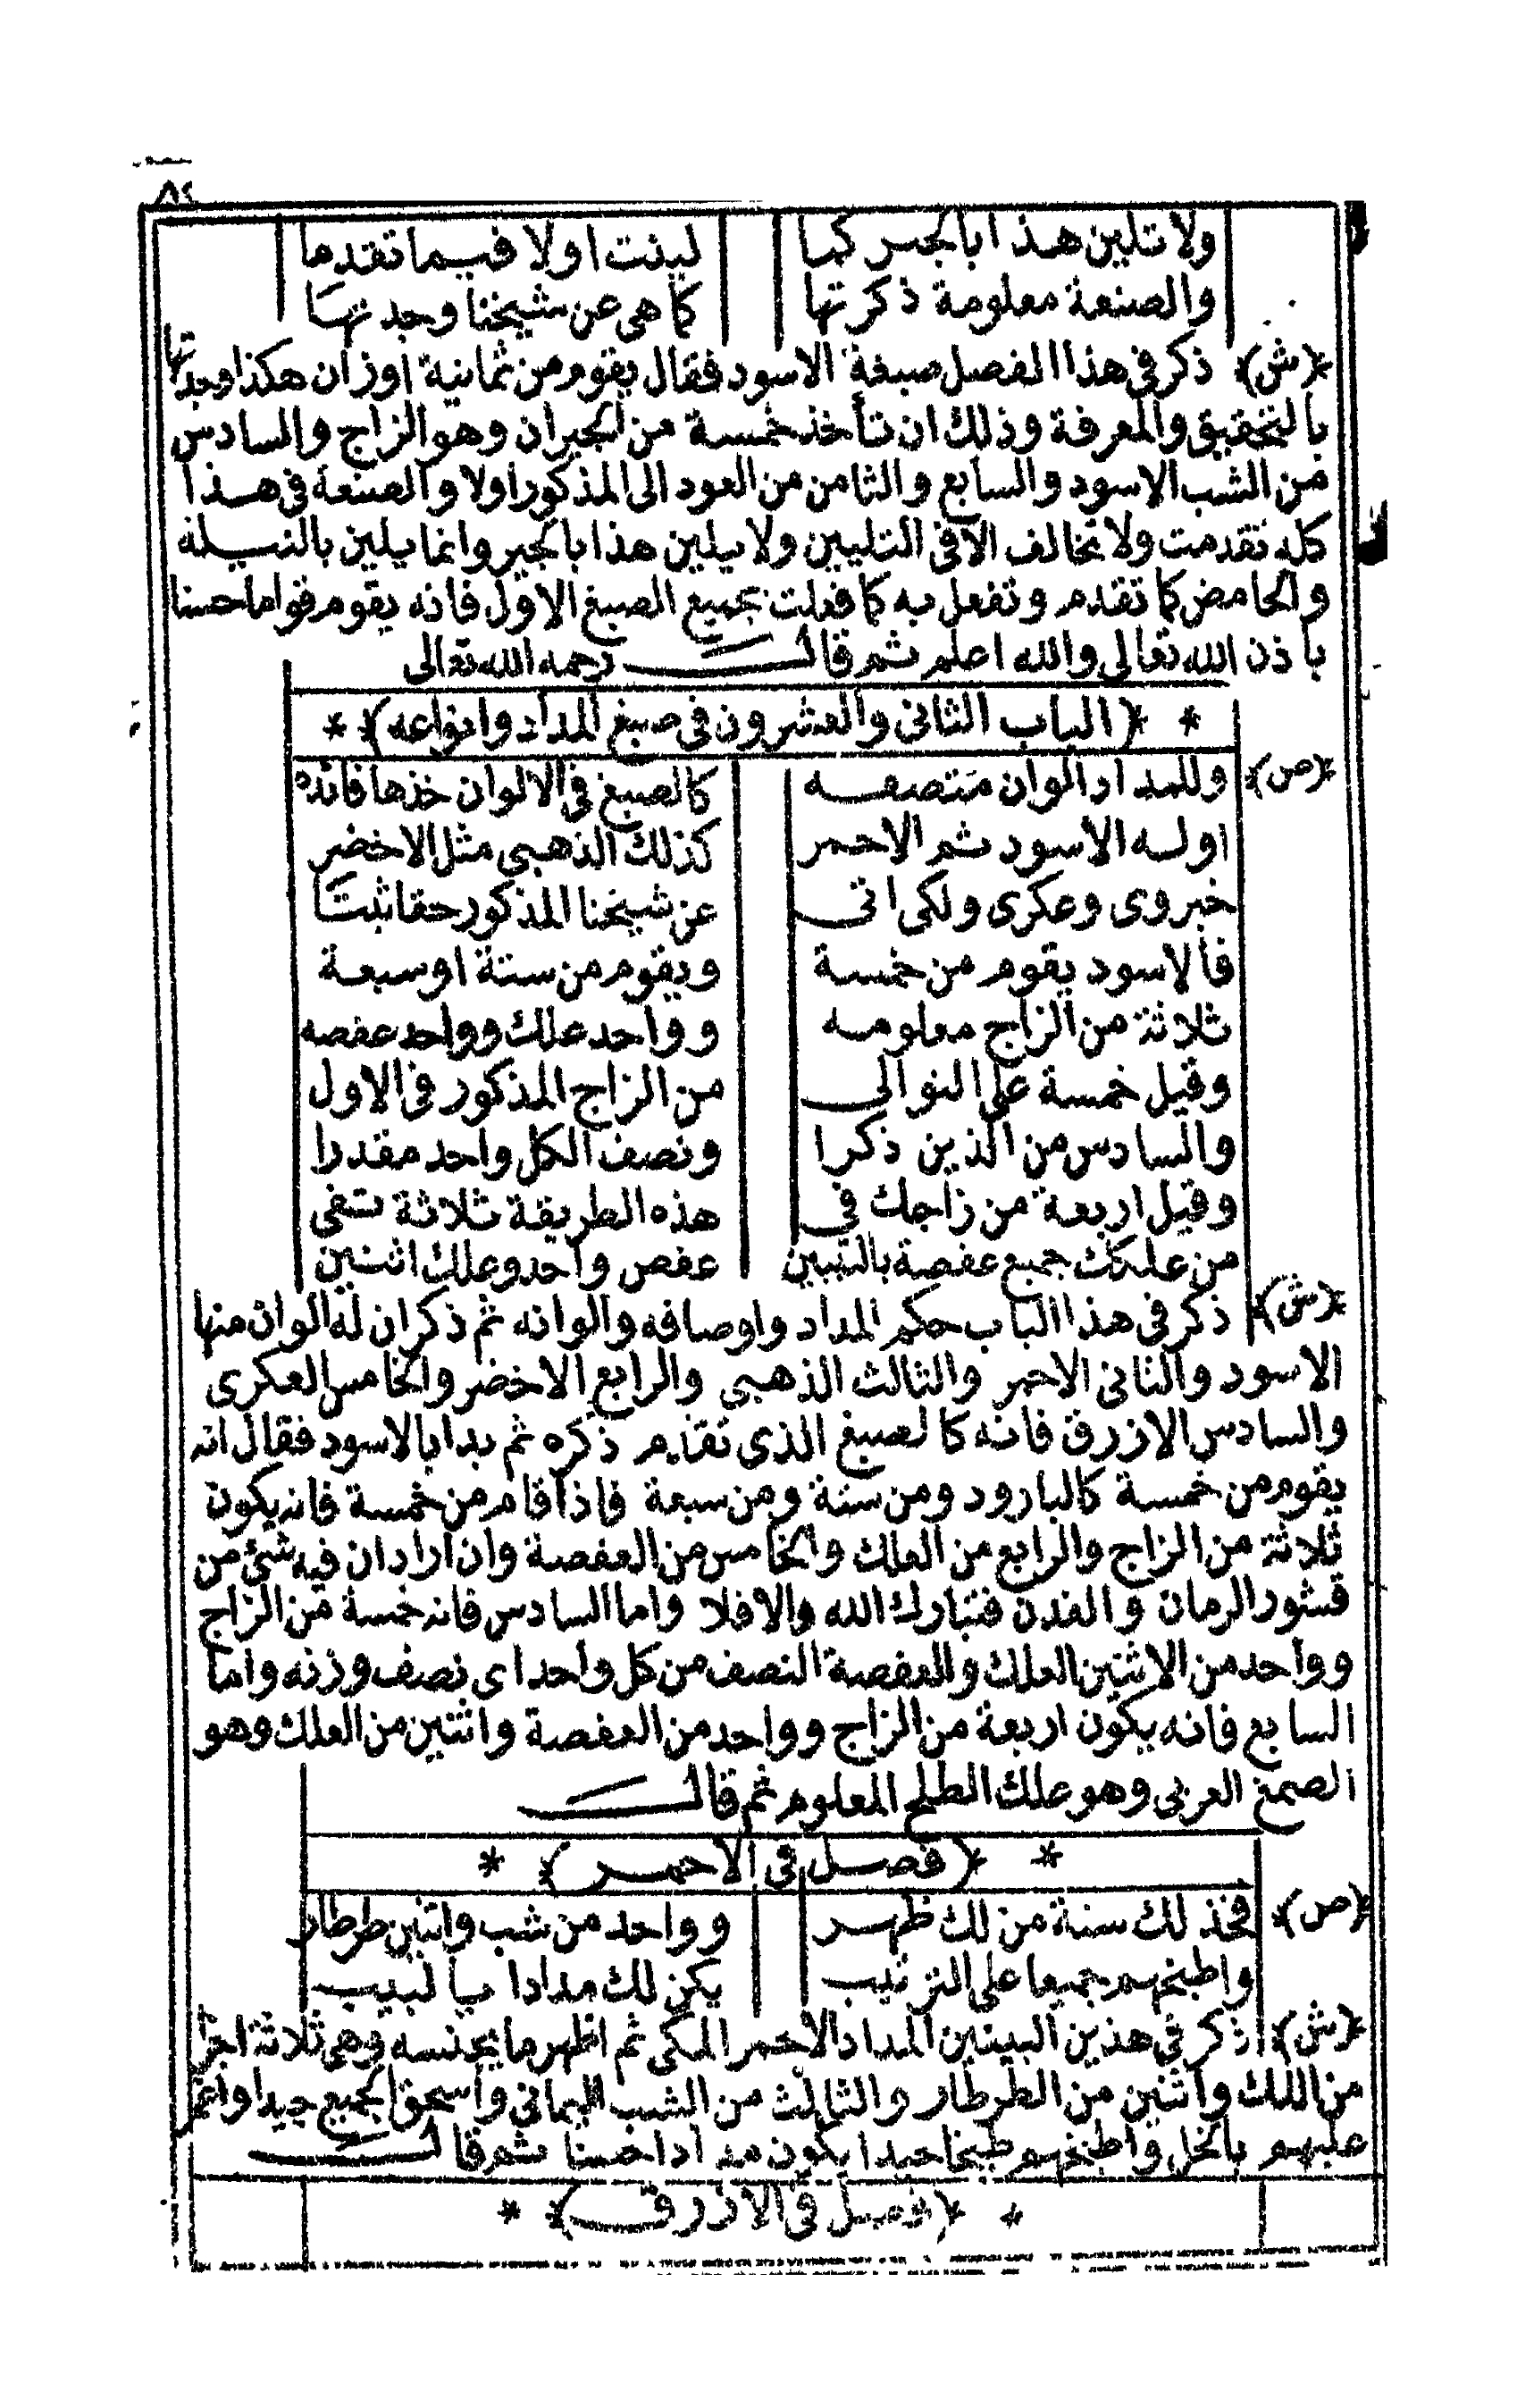 ٨٤
ولا تلين هذا بالجير كما لينت اولا فيما تقدما
والصنعة معلومة ذكرتها كما هى عن شيخنا وجدتها
(ش) ذكر فى هذا الفصل صبغة الاسود فقال يقوم من ثمانية اوزان هكذا وجدتها
بالتحقيق والمعرفة وذلك ان تأخذ خمسة من الجيران وهو الزاج والسادس
من الشب الاسود والسابع والثامن من العود الى المذكور اولا والصنعة فى هذا
كله تقدمت ولا تخالف الا فى التليين ولا يلين هذا بالجير وانما يلين بالنيلة
والحامض كما تقدم وتفعل به كما فعلت بجميع الصبغ الاول فانه يقوم قواما حسنا
بأذن الله تعالى والله اعلم ثم قال رحمه الله تعالى
* (الباب الثانى والعشرون فى صبغ المداد وانواعه) *
(ص) وللمداد الوان متصفه كالصبغ فى الالوان خذها فائده
اوله الاسود ثم الاحمر كذلك الذهبى مثل الاخضر
خبروى وعكرى ولكى اتى عن شيخنا المذكور حقا ثبتا
فالاسود يقوم من خمسة ويقوم من ستة او سبعة
ثلاثة من الزاج معلومه وواحد علك وواحد عفصه
وقيل خمسة على التوالى من الزاج المذكور فى الاول
والسادس من الذين ذكرا ونصف الكل واحد مقدرا
وقيل اربعة من زاجك فى هذه الطريقة ثلاثة تفى
من علكك جميع عفصة بالتبيين عفص واحد وعلك اثنين
(ش) ذكر فى هذا الباب حكم المداد واوصافه والوانه ثم ذكر ان له الوان منها
الاسود والثانى الاحمر والثالث الذهبى والرابع الاخضر والخامس العكرى
والسادس الازرق فانه كالصبغ الذى تقدم ذكره ثم بدا بالاسود فقال انه
يقوم من خمسة كالبارود ومن ستة ومن سبعة فاذا قام من خمسة فانه يكون
ثلاثة من الزاج والرابع من العلك والخامس من العفصة وان اراد ان فيه شئ من
قشور الرمان والفدن فتبارك الله والا فلا واما السادس فانه خمسة من الزاج
وواحد من الاثنين العلك والعفصة النصف من كل واحد اى نصف وزنه واما
السابع فانه يكون اربعة من الزاج وواحد من العفصة واثنين من العلك وهو
الصمغ العربى وهو علك الطلح المعلوم ثم قال
* (فصل فى الاحمر) *
(ص) فخذ لك ستة من لك ظهر وواحد من شب واثنين طرطار
واطبخهم جميعا على الترتيب يكن لك مدادا يا لبيب
(ش) ذكر فى هذين البيتين المداد الاحمر المكى ثم اظهر ما يجنسه وهى ثلاثة اجزا
من اللك واثنين من الطرطار والثالث من الشب اليمانى واسحق الجميع جيدا واغمر
عليهم بالخل واطبخهم طبخا جيدا يكون مدادا حسنا ثم قال
* (فصل فى الازرق) *